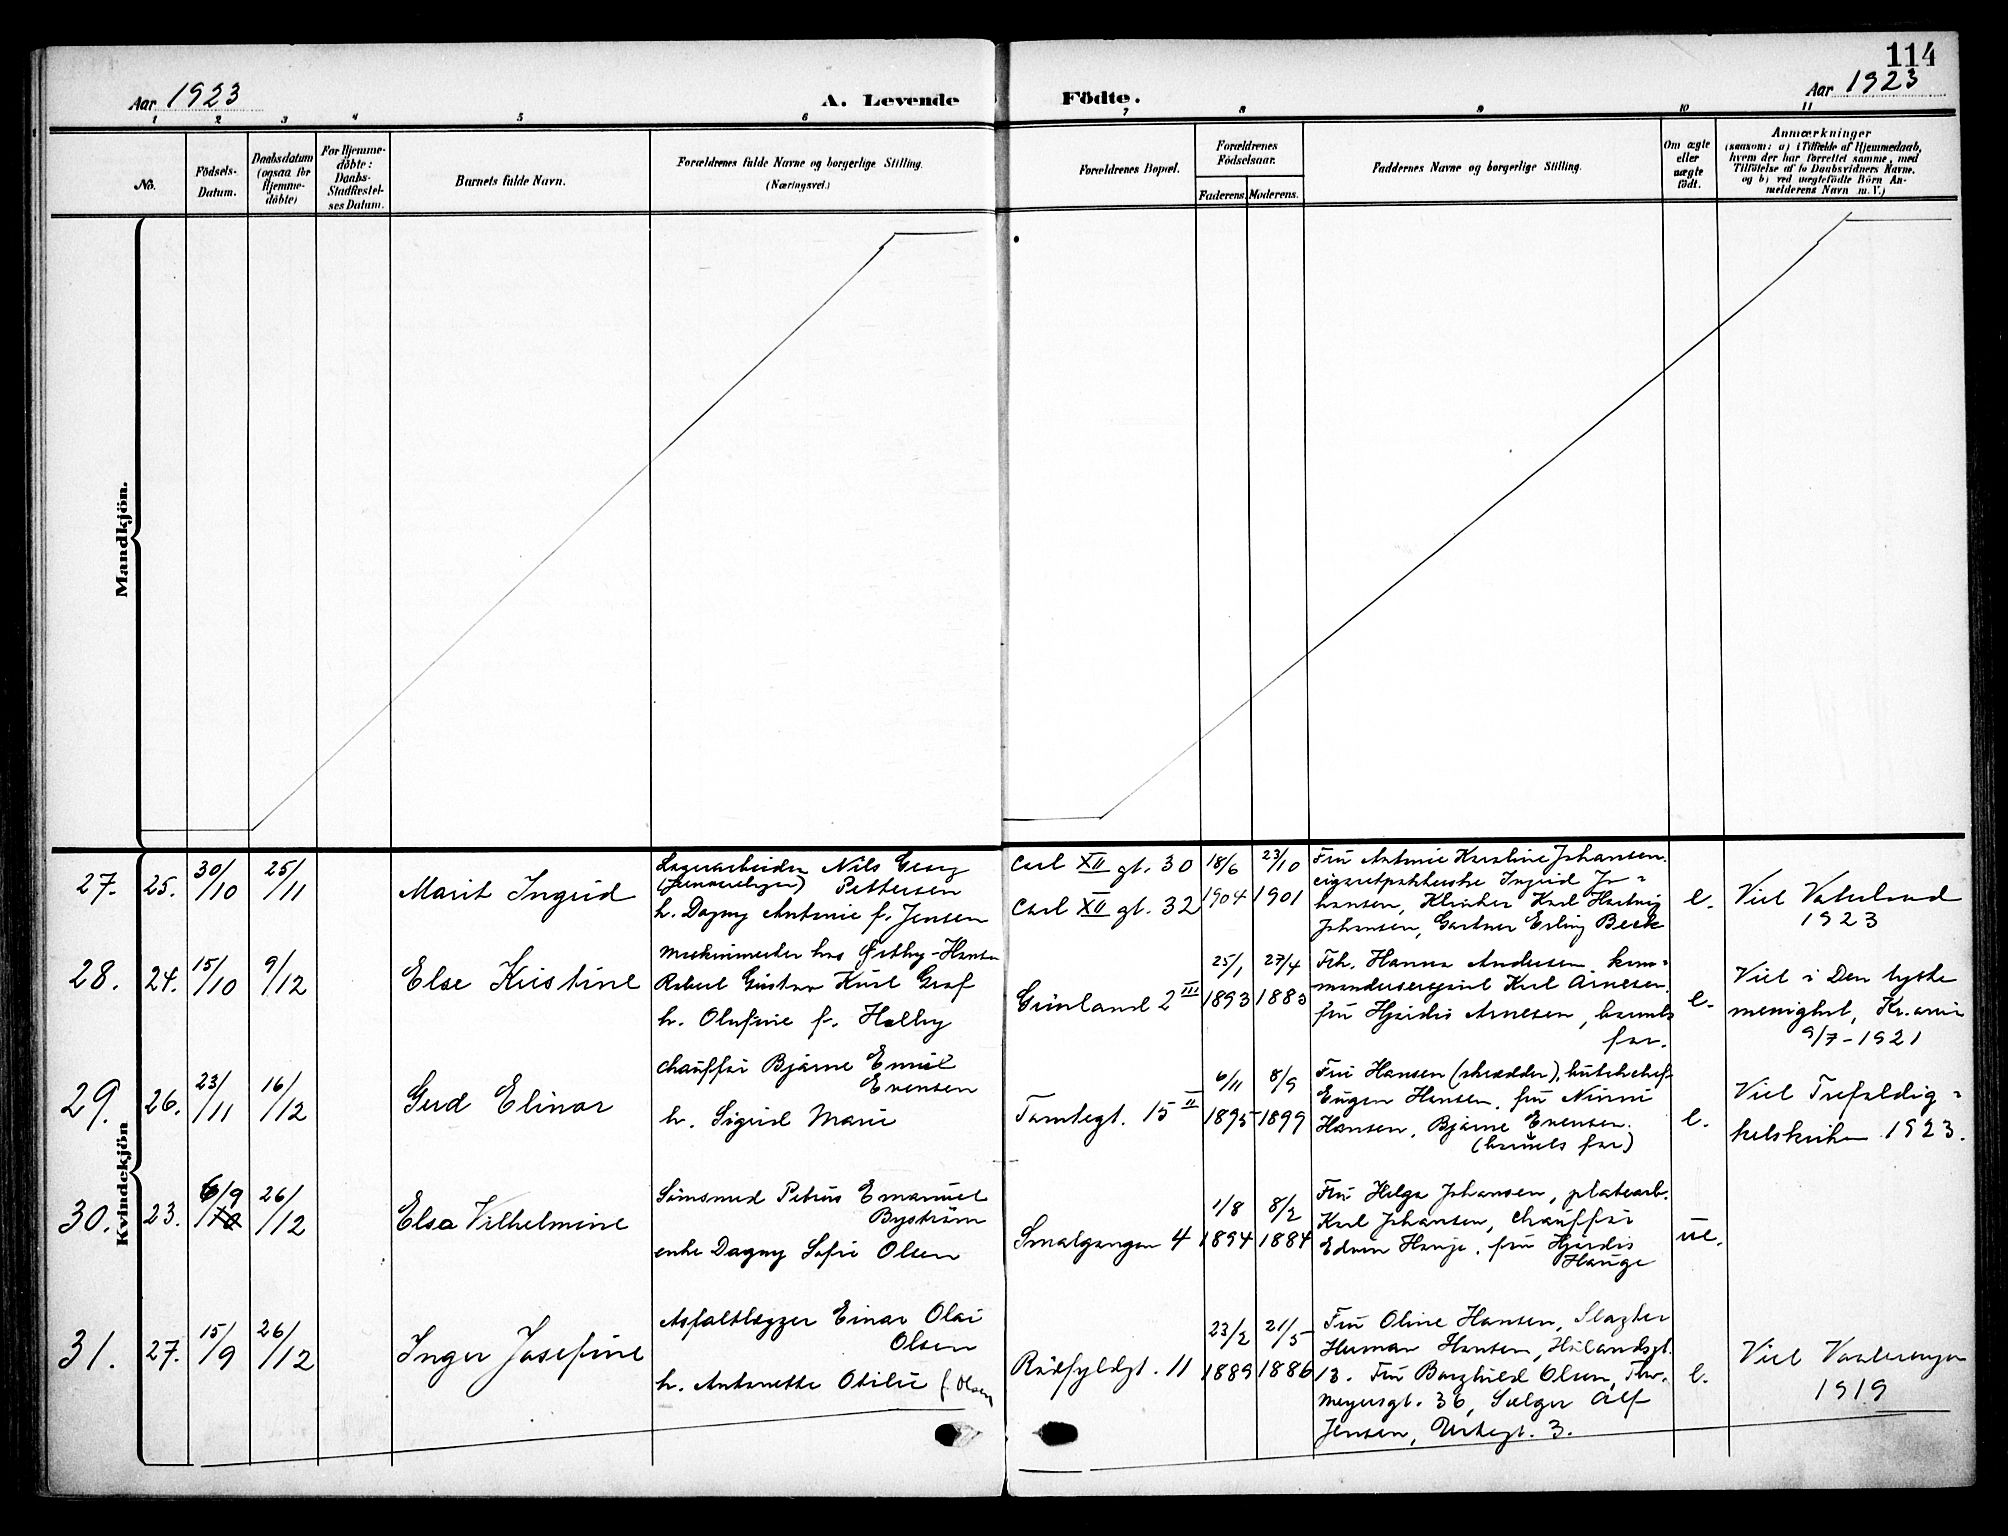 114
Aar 1923
A. Levende Födte.
Aar 1923
1 2 3 4 5 6 7 8 9 10 11
No.
Födsels-
Datum.
Daabsdatum
(ogsaa for
Hjemme-
döbte)
For Hjemme-
döbte:
Daabs-
Stadfestel-
ses Datum.
Barnets fulde Navn.
Forældrenes fulde Navne og borgerlige Stilling.
(Næringsvei.)
Forældrenes Bopæl.
Forældrenes
Födselsaar.
Faderens. Moderens.
Faddernes Navne og borgerlige Stilling.
Om ægte
eller
uægte
födt.
Anmærkninger
(saasom: a) i Tilfælde af Hjemmedaab,
hvem der har forrettet samme, med
Tilföielse af to Daabsvidners Navne,
og b) ved uægtefödte Börn An-
melderens Navn m. V.)
Mandkjön.
Kvindekjön
27. 25. 30/10 25/11
Marit Ingrid
Lagerarbeider Nils Georg
Pettersen
h. Dagny Antonie f. Jensen
Carl XII gt. 30
Carl XII gt. 32
18/6 1904
23/10 1901
Fru Antonie Karoline Johansen.
cigaretpakkerske Ingrid Jo-
hansen, Karl Hartvig
Johansen, Gartner Erling Beck
e.
Viel Vaterland
1923
28. 24. 15/10 9/12
Else Kristine
maskinmester hos Østby-Hansen
Robert Gustav Kurt Graf
h. Olufine f. Helby
Grünland 2 III
25/1 1893
27/4 1883
Frk. Hanna Andersen, kom-
mandersersjant Karl Arnesen.
fru Hjørdis Arnesen, barnets
far.
e.
Viel i Den tyske
menighet, Kr.ania
9/7-1921
29. 26. 23/11 16/12
Gerd Elinor
chauffør Bjarne Emil
Evensen
h. Sigrid Marie
Tomtegt. 15 II
6/11 1895
8/9 1899
Fru Hansen (skrædder),
Eugen Hansen. fru Ninni
Hansen, Bjarne Evensen.
(barnets far)
e.
Viel Trefoldig-
hetskirken 1923.
30. 23. 6/9 26/12
Elsa Vilhelmine
Sømsmed Petrus Emanuel
Byström
enke Dagny Sofie Olsen
Smalgangen 4
1/8 1894
8/2 1884
Fru Helga Johansen, platearb.
Karl Johansen, chauffør
Edvin Hauge. fru Hjørdis
Hauge
ue.
31. 27. 15/9 26/12
Inger Josefine
Asfaltlægger Einar Olai
Olsen
h. Antonette Otilie f. Olsen
Rødfyldgt. 11
23/2 1889
21/5 1886
Fru Oline Hansen, Slagter
Herman Hansen, Hølandsgt.
13. Fru Borghild Olsen, Thv.
meyersgt. 36, Sælger Alf
Jensen, Urtegt. 3.
e.
Viel Vaalerengen
1919